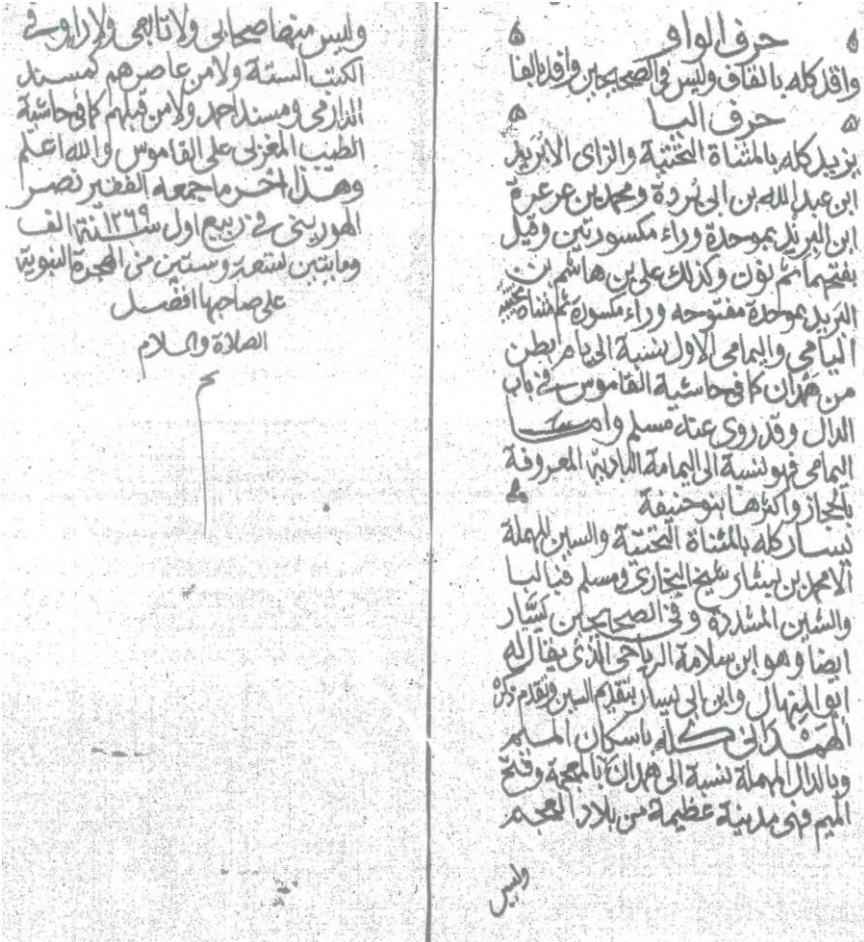 حرف الواو
واقد كله بالقاف وليس في الصحيحين وافد بالفا
حرف اليا
يزيد كله بالمثناة التحتية والزاى الا بريد
ابن عبد الله بن ابى بردة ومحمد بن عرعرة
ابن البرند بموحدة وراء مكسورتين وقيل
بفتحهما ثم نون وكذلك على بن هاشم بن
البريد بموحدة مفتوحه وراء مكسورة ثم مثناة تحتية
اليامى واليمامى الاول نسبة الى يام بطن
من همدان كما فى حاشية القاموس فى باب
الدال وقد روى عنه مسلم واما
اليمامى فهو نسبة الى اليمامة البادية المعروفة
بالحجاز واكثرها بنو حنيفة
يسار كله بالمثناة التحتية والسين المهملة
الا محمد بن بشار شيخ البخارى ومسلم فبالبا
والشين المشددة وفى الصحيحين سيار
ايضا وهو ابن سلامة الرياحى الذى يقال له
ابو المنهال وابن ابى سيار بتقديم السين وتقدم ذكره
الهمدانى كله باسكان الميم
وبالدال المهملة نسبة الى همدان بالمعجمة وفتح
الميم فهى مدينة عظيمة من بلاد العجم
وليس
وليس منها صحابى ولا تابعى ولا راو فى
الكتب الستة ولا من عاصرهم كمسند
الدارمى ومسند احمد ولا من قبلهم كما فى حاشية
الطيب المغربى على القاموس والله اعلم
وهذا اخر ما جمعه الفقير نصر
الهورينى فى ربيع اول سنة ١٢٦٩ الف
ومايتين تسعة وستين من الهجرة النبوية
على صاحبها افضل
الصلاة والسلام